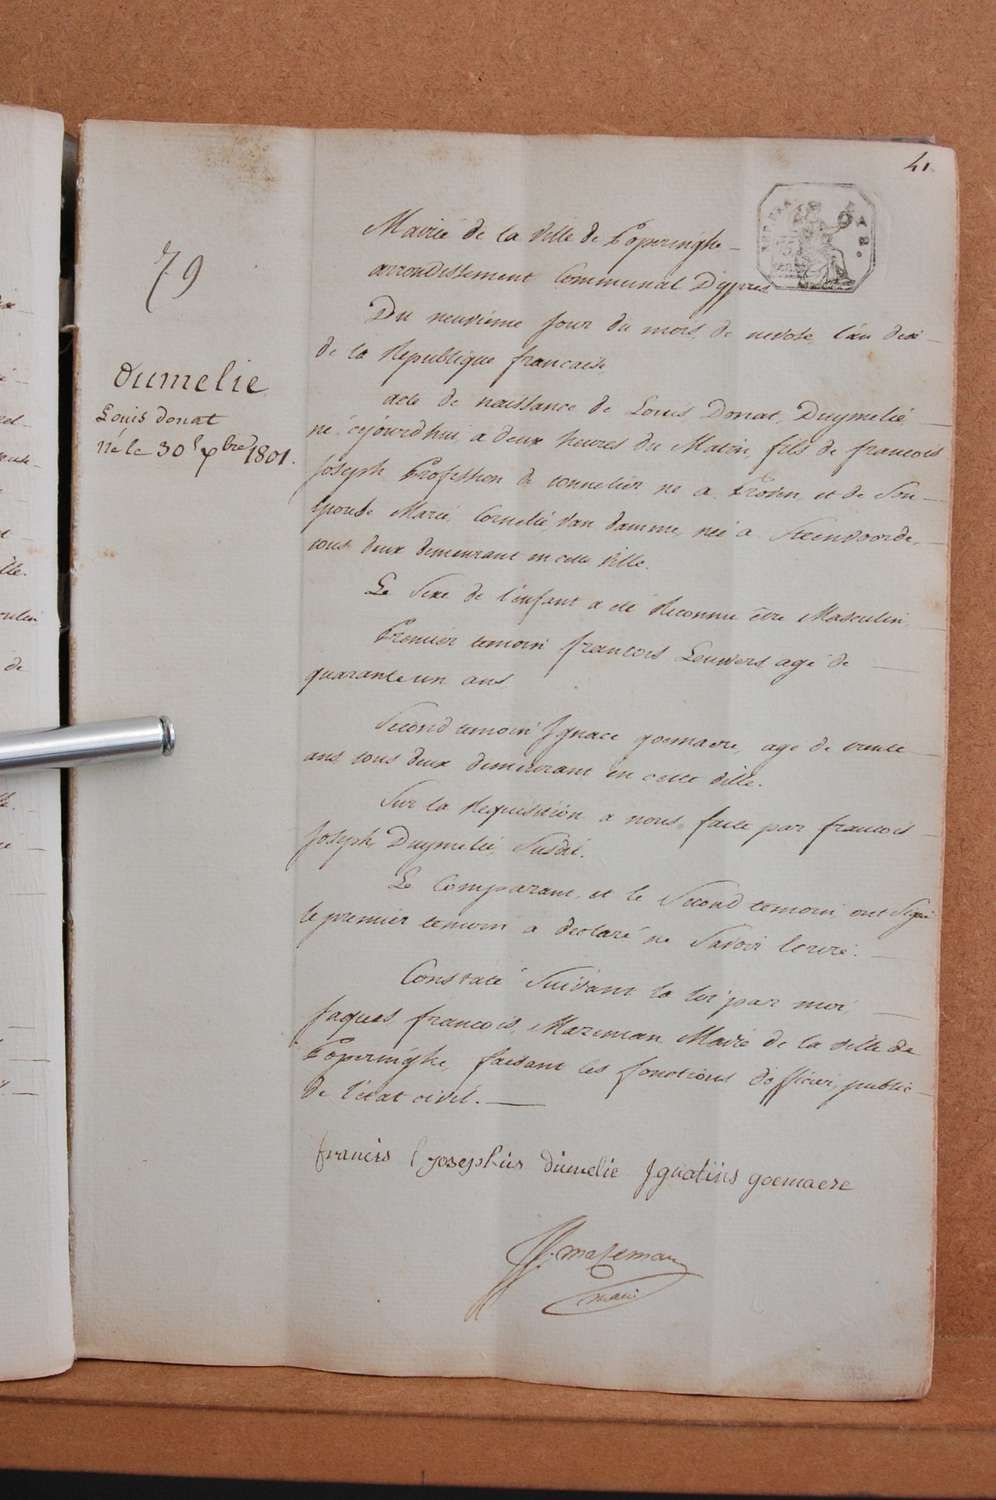 41.
79
Dumelie
Louis donat
né le 30 Xbre 1801.
Mairié de la Ville de Poperinghe
arrondissement Communal D'ypres
Du neuvieme jour du mois de nivose l'an dix
de la Republique francaise
acte de naissance de Louis Donat Duymelié
né cejourd'hui a deux heures du Matin, fils de francois
Joseph Profession de tonnelier né a et de Son
Epouse Marié Cornelié Van damme, neé a Steenvoorde,
tous deux demeurant en cette Ville.
Le Sexe de l'enfant a été Reconnu être Masculin
Premier temoin francois Leuwers agé de
quarante un ans
Second temoin Jgnace goemaere, agé de trente
ans tous deux demeurant en cette Ville.
Sur la Requisition a nous faite par francois
Joseph Duymelié, Susdi.
Le Comparant, et le Second temoin ont Signé
le premier temoin a declaré ne Savoir Ecrire.
Constaté Suivant la loi par moi
Jaques francois Mazeman Mairé de la Ville de
Poperinghe, faisant les fonctions d'officier public
de l'état civil.
francis josephüs dümelie Jgnatiüs goemaere
JF. mazeman
mairé